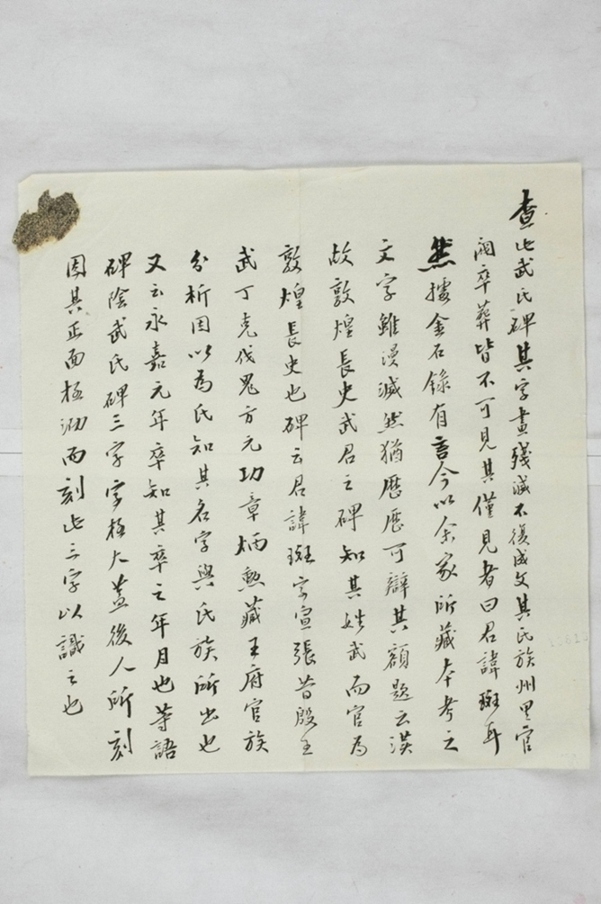 查此武氏碑其字畫殘滅不復成文其氏族州里官
閥卒葬皆不可見其僅見者曰君諱斑耳
然據金石錄有言今以余家所藏本考之
文字雖漫滅然猶歷歷可辯其額題云漢
故敦煌長史武君之碑知其姓武而官為
敦煌長史也碑云君諱斑字宣張昔殷王
武丁克伐鬼方元功章炳勲藏王府官族
分析因以為氏知其名字與氏族所出也
又云永嘉元年卒知其卒之年月也等語
碑陰武氏碑三字字極大蓋後人所刻
因其正面極泐而刻此三字以識之也